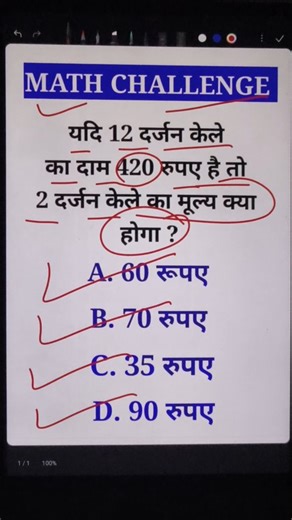 MATH CHALLENGE
यदि 12 दर्जन केले
का दाम 420 रुपए है तो
2 दर्जन केले का मूल्य क्या
होगा ?
A. 60 रूपए
B. 70 रुपए
C. 35 रुपए
D. 90 रुपए
1/1 100%